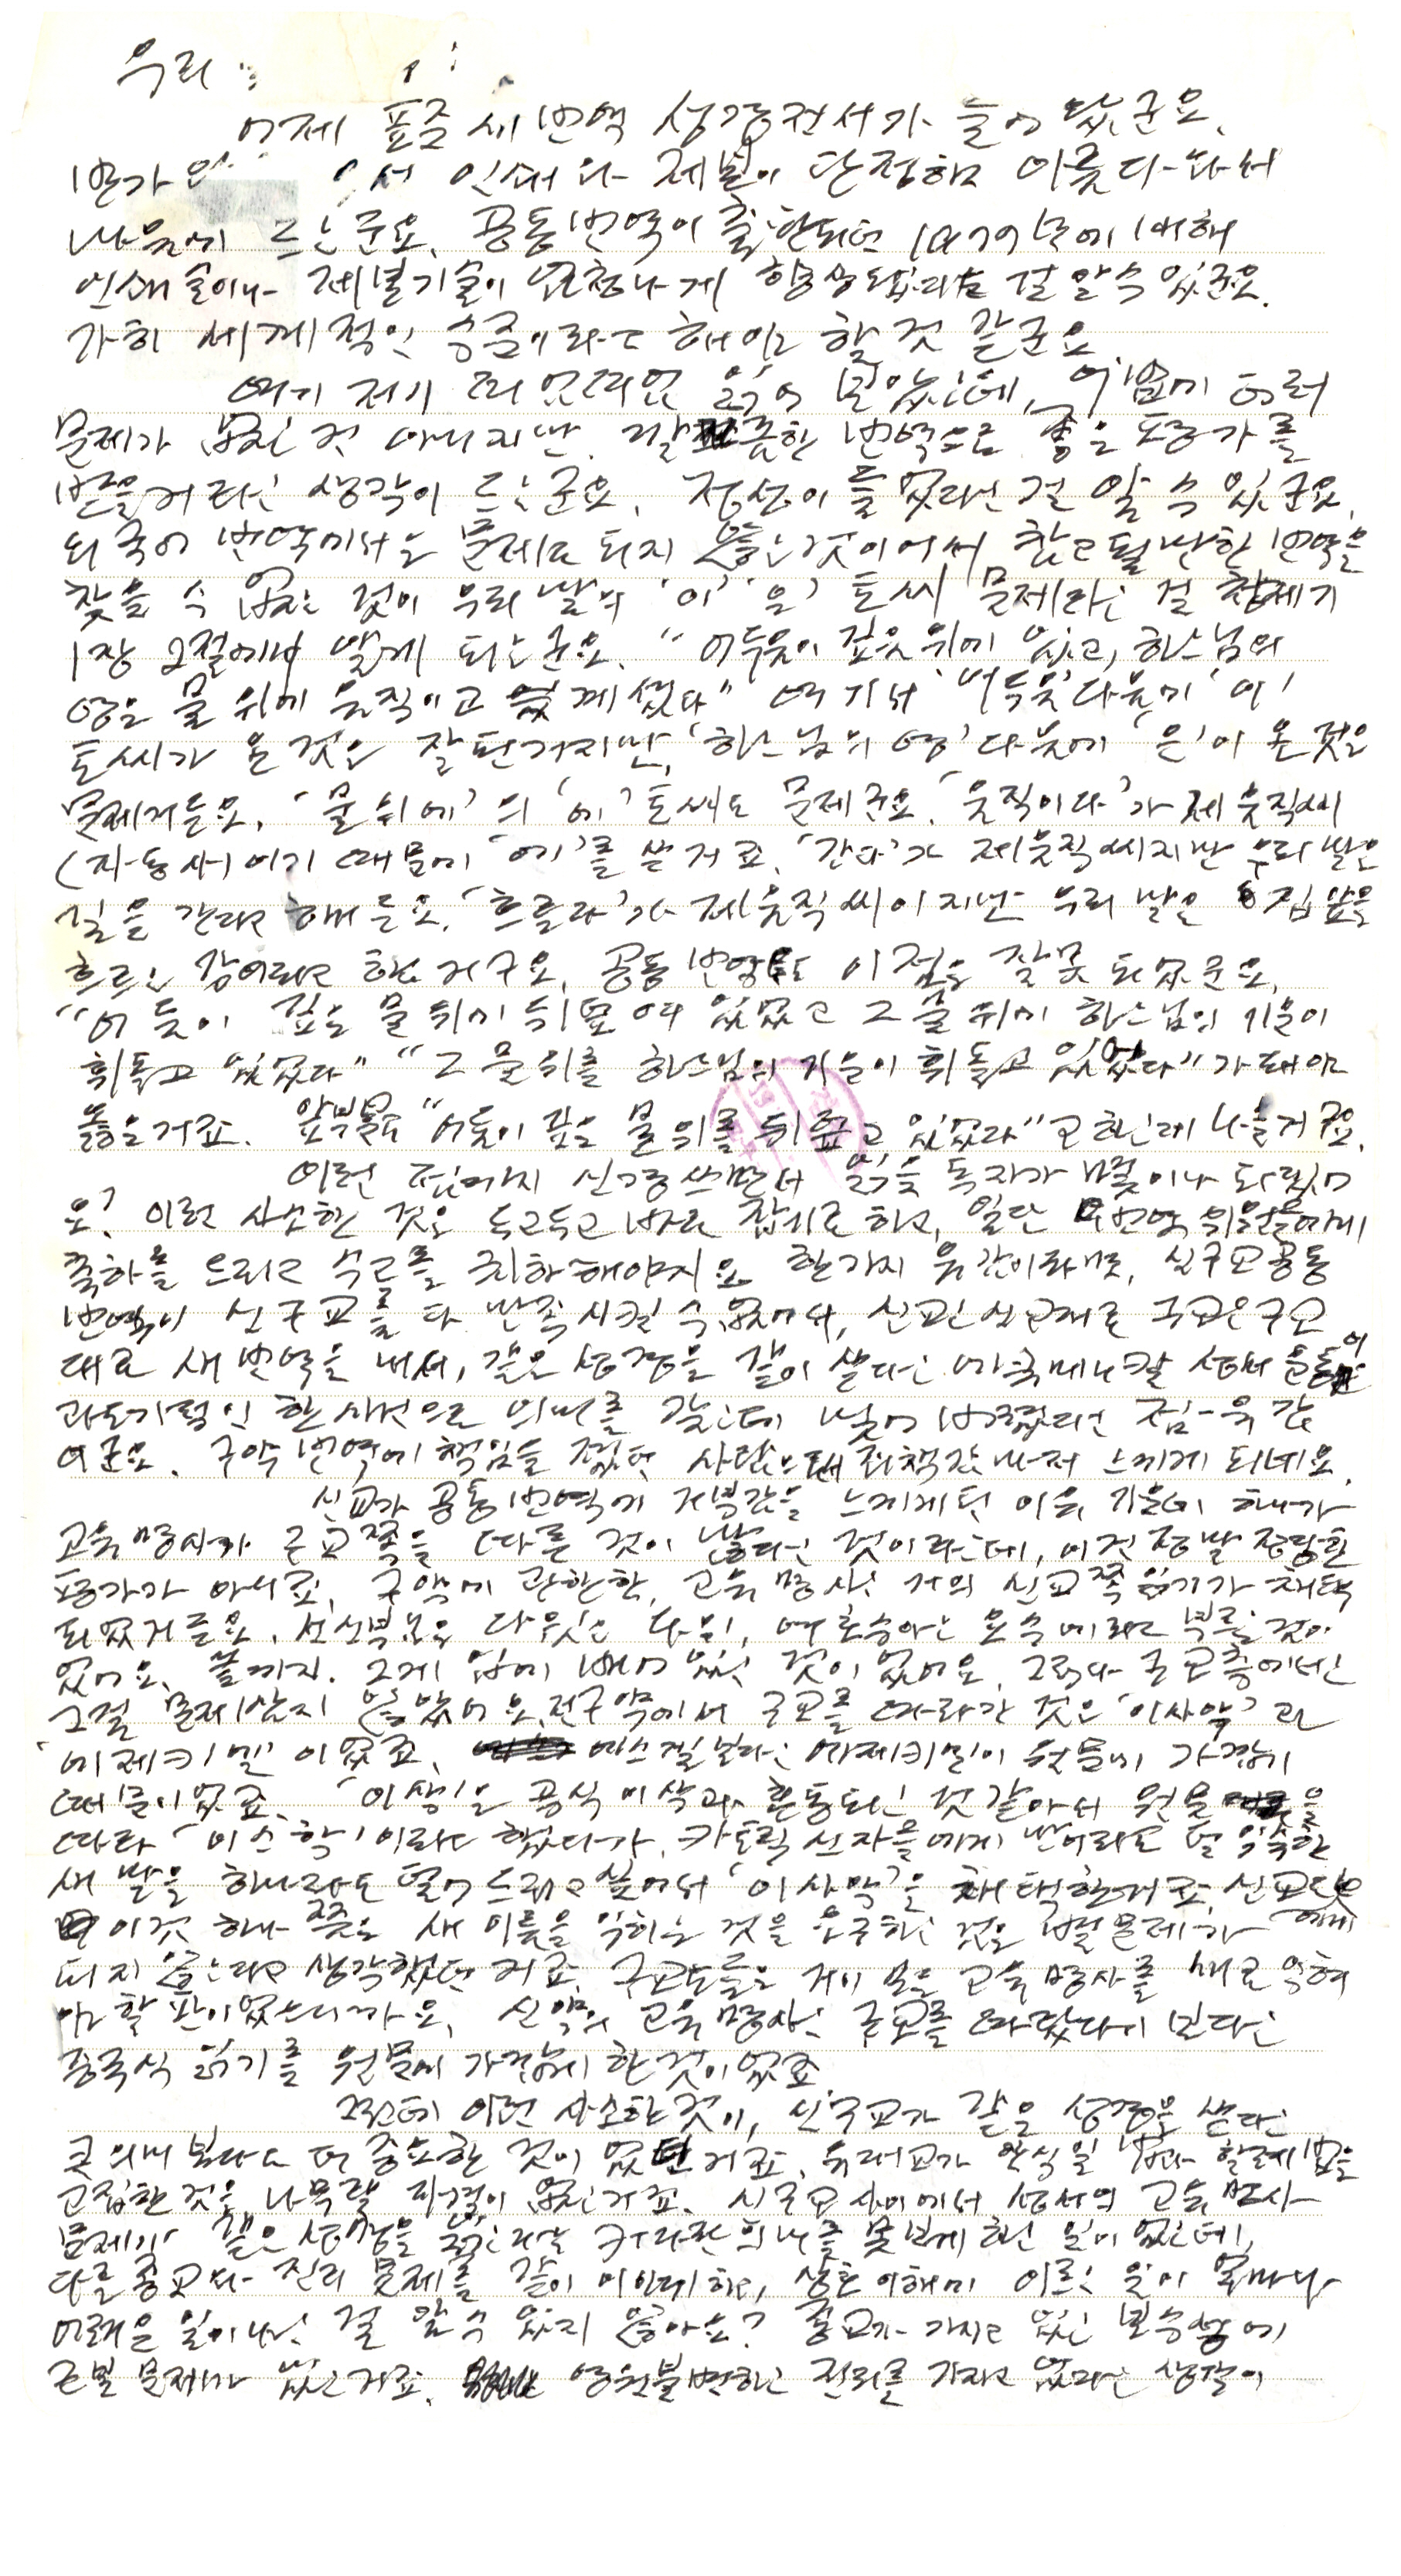 우리
어제 표준 새번역 성경전서가 들어왔군요.
인쇄와 제본이 단정하고 아름다와서
마음에 드는군요. 공동번역이 출판되던 1977년에 비해
인쇄술이나 제본기술이 엄청나게 향상되었다는 걸 알 수 있군요.
가히 세계적인 수준이라고 해야 할 것 같군요.
여기 저기 띄엄띄엄 읽어 보았는데, 여러
문제가 없는 것 아니지만, 번역으로 좋은 평가를
받을거라는 생각이 드는군요. 정성이 들었다는 걸 알 수 있군요.
외국어 번역에서는 문제도 되지 않는 것이어서 참고될만한 번역을
찾을 수 없는 것이 우리 말의 '이' '은' 토씨 문제라는 걸 창세기
1장 2절에서 알게 되는군요. "어두움이 깊음 위에 있고, 하느님의
영은 물 위에 움직이고 계셨다" 여기서 '어두움' 다음에 '이'
토씨가 온 것은 잘된거지만, '하느님의 영' 다음에 '은'이 온 것은
문제거든요. '물 위에'의 '에' 토씨도 문제군요. '움직이다'가 제움직씨
(자동사)이기 때문에 '에'를 쓴거죠. '간다'가 제움직씨지만 우리 말은
길을 간다고 하거든요. '흐르다'가 제움직씨이지만 우리 말은 집 앞을
흐르는 강이라고 하는 거구요. 공동번역도 이 점은 잘못되었군요.
"어둠이 깊은 물 위에 뒤덮여 있었고 그 물 위에 하느님의 기운이
휘돌고 있었다" "그 물 위를 하느님의 기운이 휘돌고 있었다"가 돼야
옳은거죠. 앞부분도 "어둠이 깊은 물 위를 뒤덮고 있었다"고 하는게 나을거구요.
이런 점까지 신경쓰면서 읽을 독자가 몇이나 되겠어
요? 이런 사소한 것은 두고두고 바로 잡기로 하고, 일단 번역위원들에게
축하를 드리고 수고를 치하해야지요. 한가지 유감이라면, 신구교 공동
번역이 신구교를 다 만족시킬 수 없어서, 신교는 신교대로 구교는 구교
대로 새 번역을 내서, 같은 성경을 같이 쓴다는 에큐메니칼 성서 운동이
과도기적인 한 시선으로 의미를 갖는데 멎어 버렸다는 점- 유감
이군요. 구약 번역에 책임을 졌던 사람으로 죄책감마저 느끼게 되네요.
신교가 공동번역에 거부감을 느끼게 된 이유 가운데 하나가
고유명사가 구교쪽을 따른 것이 많다는 것이라는데, 이건 정말 정당한
평가가 아니죠. 구약에 관한한, 고유명사는 거의 신교쪽 읽기가 채택
되었거든요. 선신부님은 다윗은 다윗, 여호수아는 요수에라고 부를 것이
었어요, 끝까지. 그게 입에 배어 있는 것이었어요. 그러나 구교측에서는
그걸 문제삼지 않았어요. 전구약에서 구교를 따라간 것은 '이사악'과
'에제키엘'이었죠. 에스겔보다는 에제키엘이 원문에 가깝기
때문이었죠. '이삭'은 곡식 이삭과 혼동되는 것 같아서 원문을
따라 '이스학'이라고 했다가, 카톨릭 신자들에게 만이라도 덜 익숙한
새 말을 하나라도 덜어 드리고 싶어서 '이사악'을 채택한거죠. 신교도에게
이것 하나 쯤은 새 이름을 익히는 것을 요구하는 것은 별 문제가
되지 않는다고 생각했던거죠. 구교도들은 거의 모든 고유명사를 새로 익혀
야 할 판이었으니까요. 신약의 고유명사는 구교를 따랐다기 보다는
중국식 읽기를 원문에 가깝게 한 것이었죠
그런데 이런 사소한 것이, 신구교가 같은 성경을 쓴다는
큰 의미보다도 더 중요한 것이 었던거죠. 유대교가 안식일 법과 할례법을
고집한 것을 나무랄 자격이 없는거죠. 신구교 사이에서 성서의 고유명사
문제가 같은 성경을 커다란 의미를 못보게 하는 일이었는데,
다른 종교와 진리 문제를 같이 이야기하고, 상호 이해에 이르는 일이 얼마나
어려운 일이라는 걸 알 수 있지 않아요? 종교가 가지고 있는 보수성에
근본 문제가 있는거죠. 영원불변하는 진리를 가지고 있다는 생각이